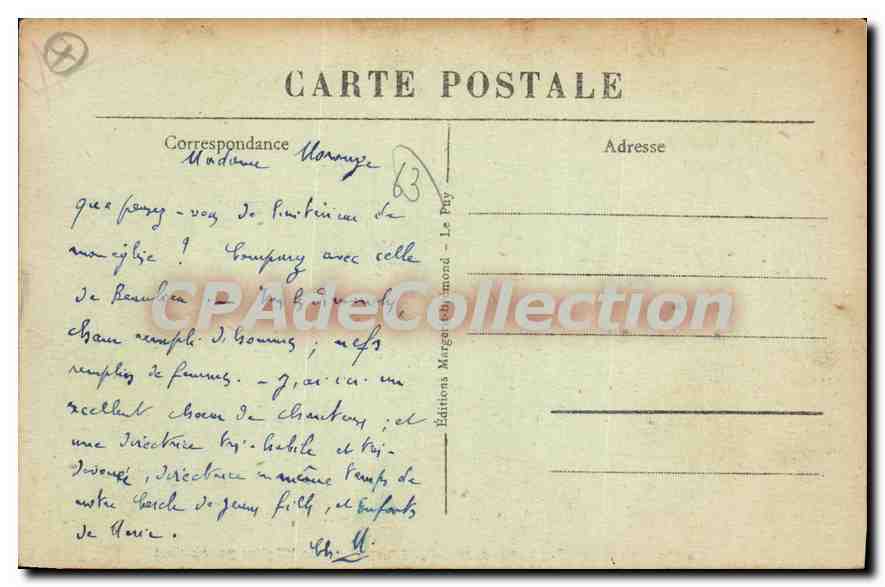 CARTE POSTALE
Correspondance
Adresse
Madame
63
que pensez-vous de l'intérieur de
mon église ! Comparez avec celle
de Beaulieu. - les dimanches,
chœur rempli d'hommes ; nefs
remplies de femmes. - J'ai ici un
excellent chœur de chanteurs ; et
une directrice très-habile et très-
dévouée, directrice en même temps de
notre Cercle de jeunes filles, et Enfants
de Marie.
Ch. M.
Éditions Margerit-Brémond - Le Puy
CPAdeCollection